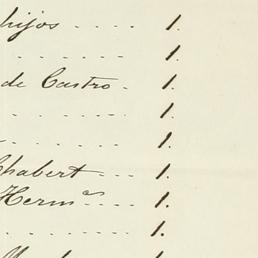 hijos - - - - 1.
- - - - - - 1.
de Castro - 1.
- - - - - 1.
- - - - - - 1.
Chabert - - - 1.
Herm.ª - - - - 1.
- - - - - - 1.
1.